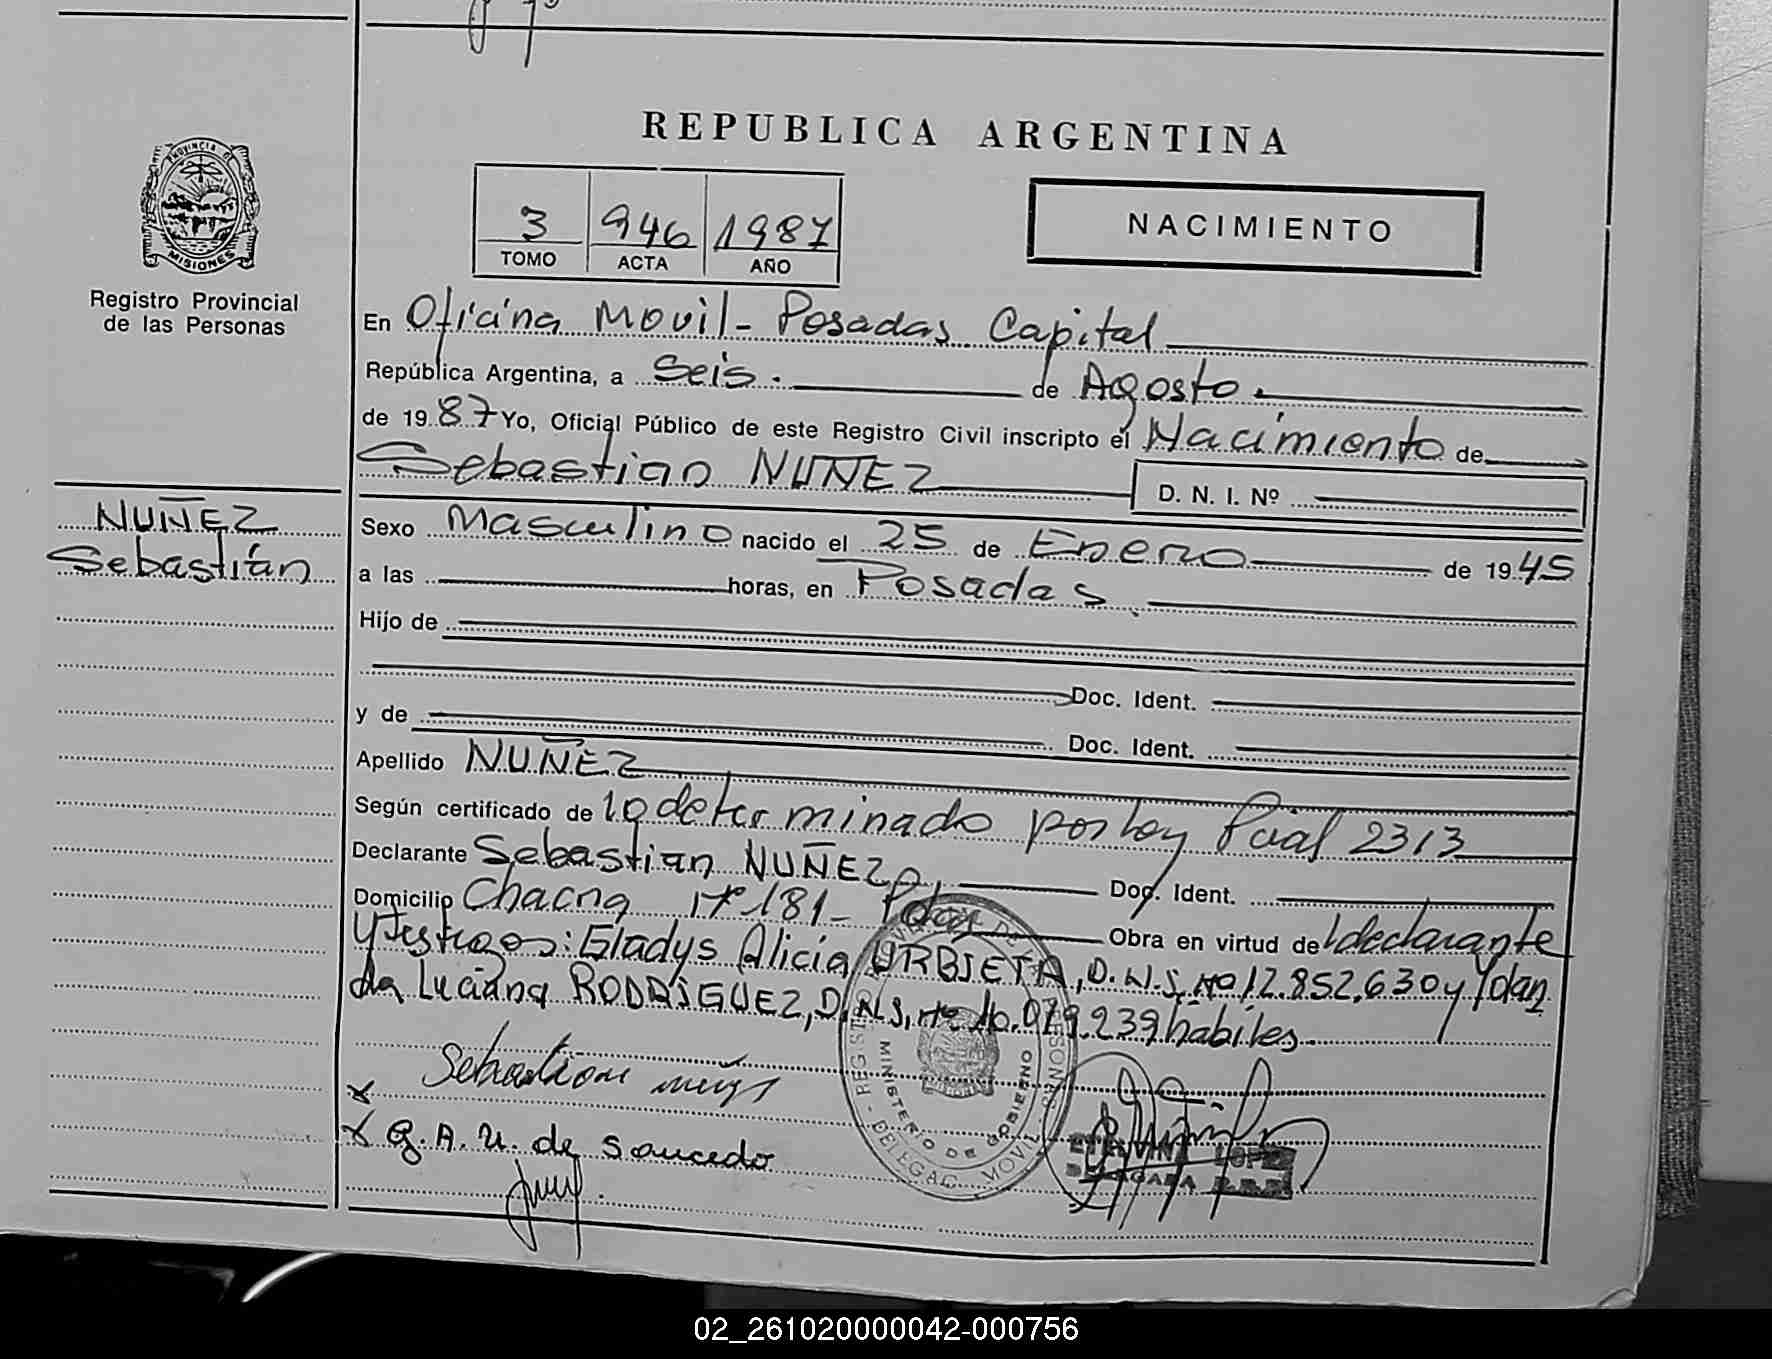 REPUBLICA ARGENTINA
PROVINCIA DE
MISIONES
Registro Provincial
de las Personas
3 946 1987
TOMO ACTA AÑO
NACIMIENTO
En Oficina Movil - Posadas Capital
República Argentina, a Seis. de Agosto.
de 1987 Yo, Oficial Público de este Registro Civil inscripto el Nacimiento de
Sebastian NUÑEZ D. N. I. Nº
NUÑEZ
Sebastián
Sexo Masculino nacido el 25 de Enero de 1945
a las horas, en Posadas.
Hijo de
Doc. Ident.
y de Doc. Ident.
Apellido NUÑEZ
Según certificado de lo determinado por ley Pcial 2313
Declarante Sebastian NUÑEZ, Doc. Ident.
Domicilio Chacra Nº 181 - Pdas Obra en virtud de l declarante
y testigos: Gladys Alicia URBIETA, D.N.I. Nº 12.852.630 y Yolan
da Luciana RODRIGUEZ, D.N.I. Nº 10.079.239 hábiles.
Sebastian nuñez
x
x G. A. U. de Saucedo
MINISTERIO DE GOBIERNO
DELEGAC. MOVIL
LOPEZ
02_261020000042-000756